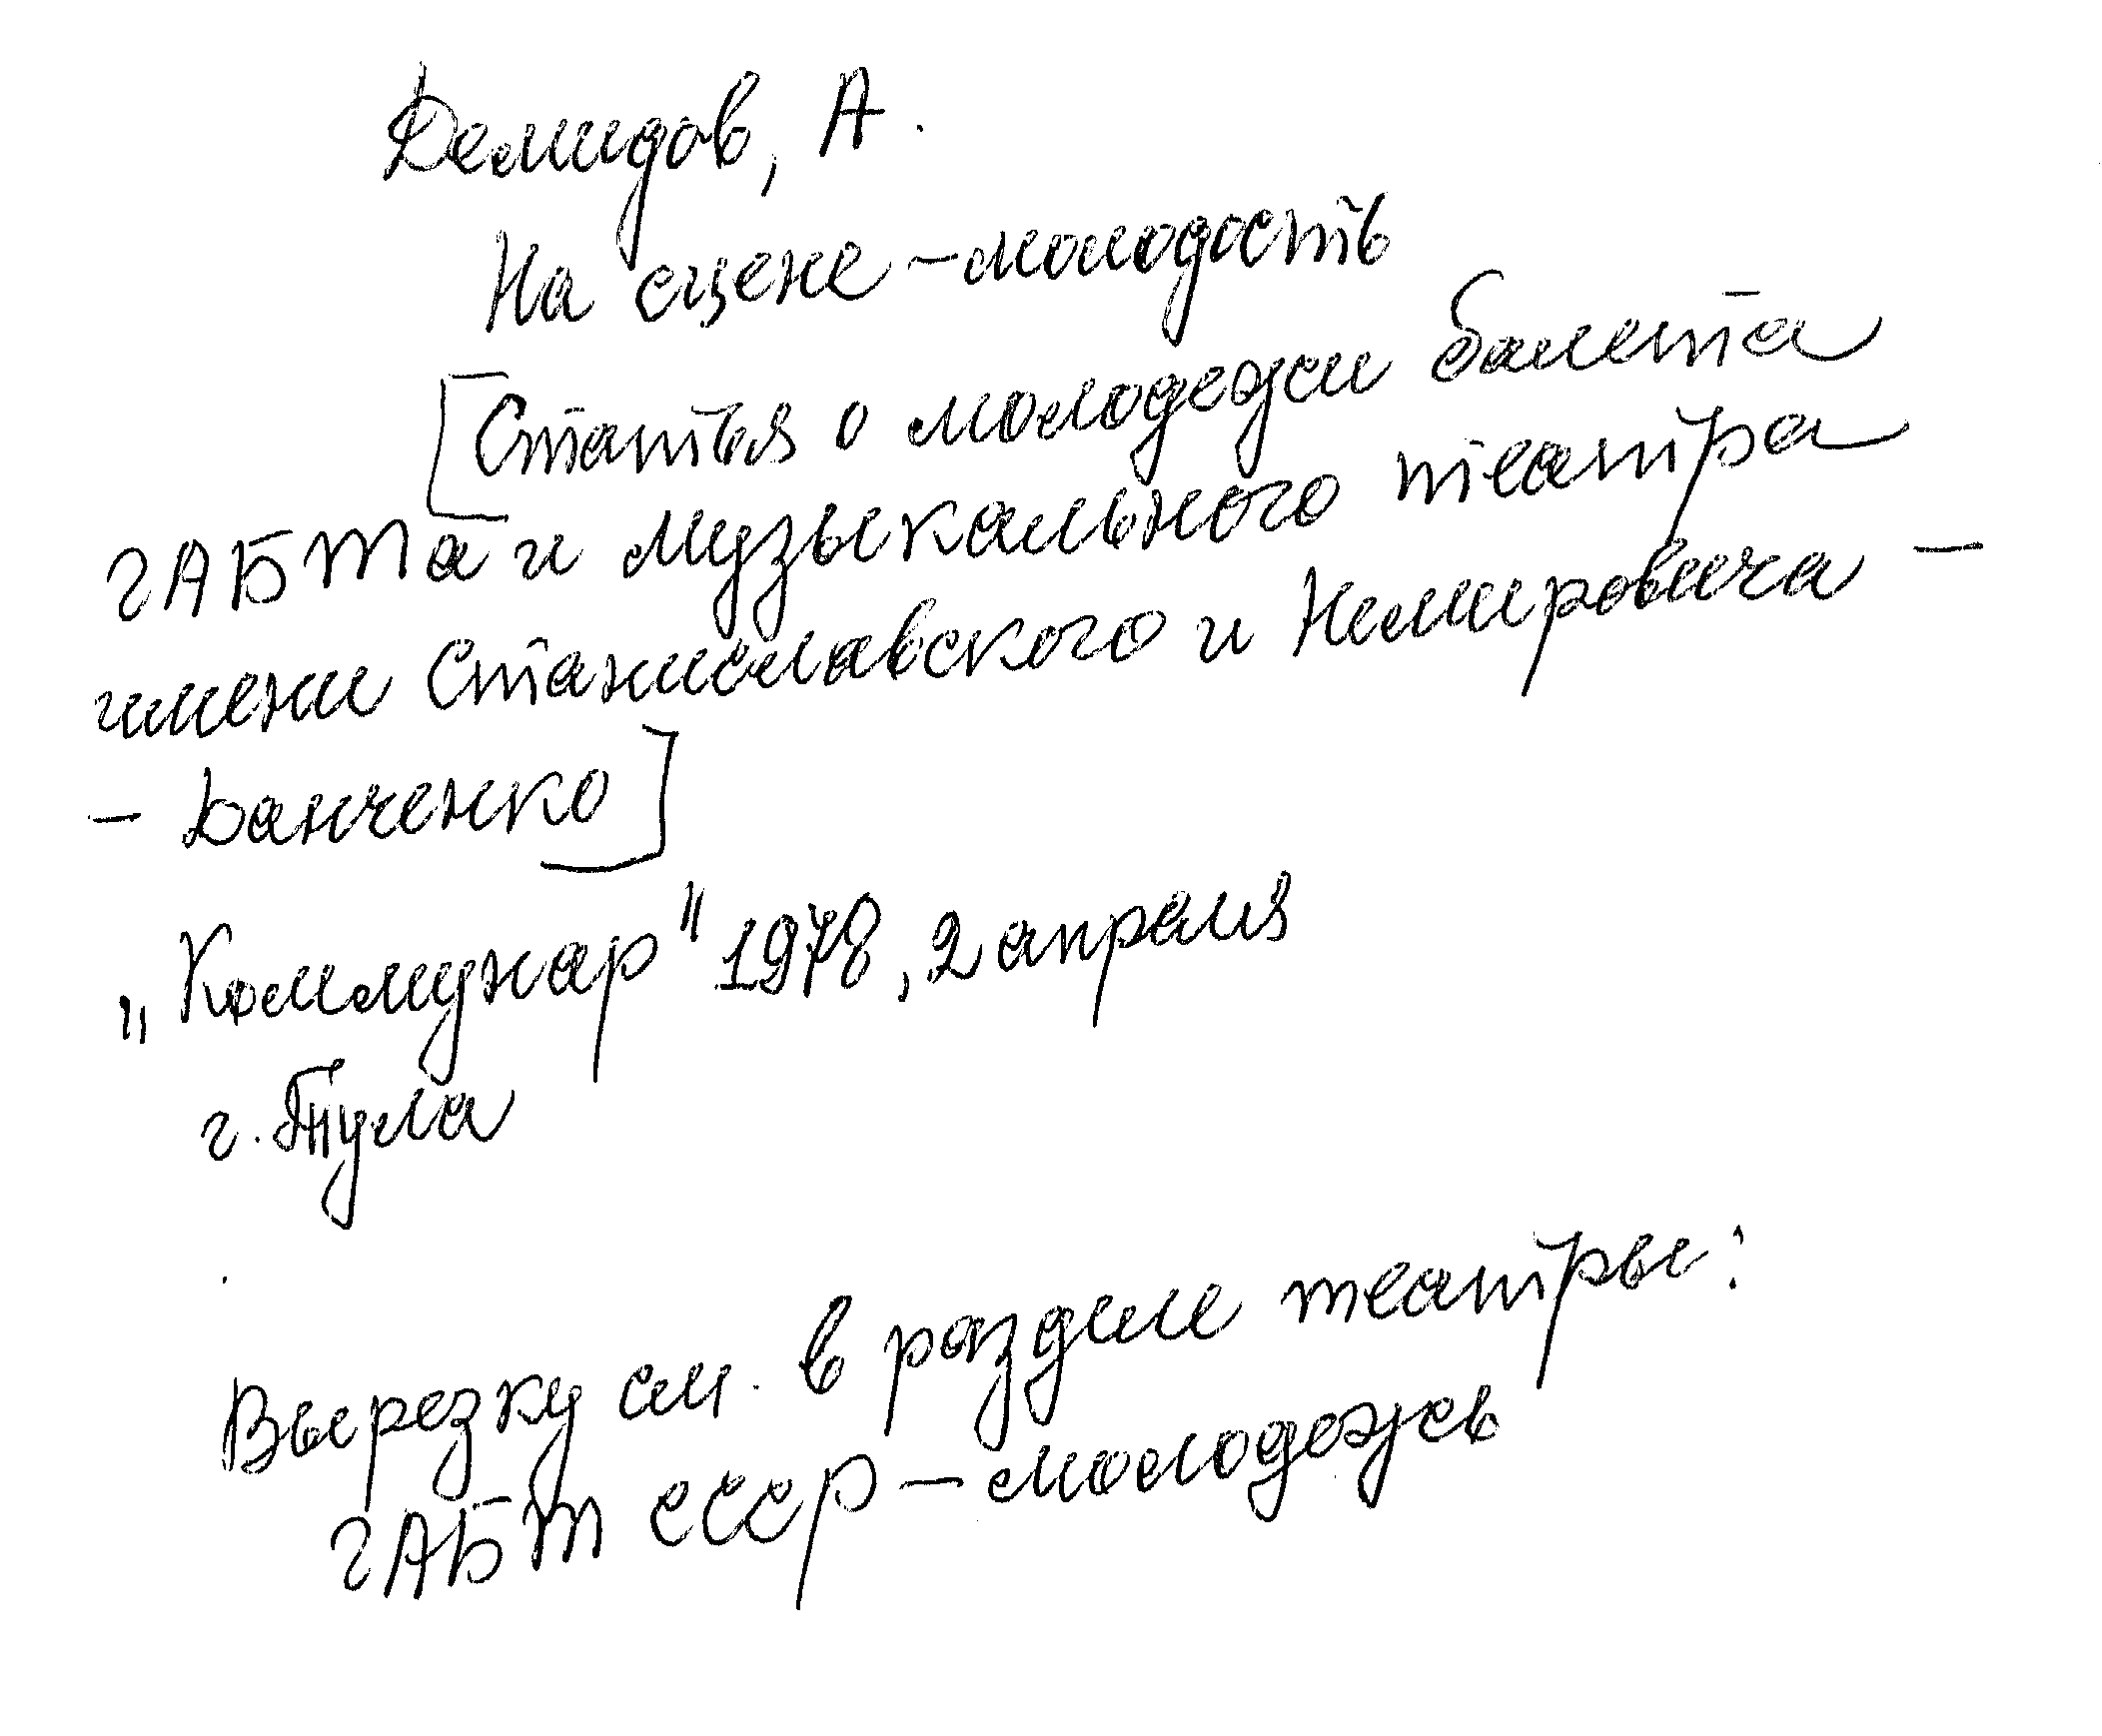 Демидов, А.
На сцене – молодость
[Статья о молодежи балета
ГАБТа и Музыкального театра
имени Станиславского и Немировича –
– Данченко]
„Коммунар" 1978, 2 апреля
г. Тула
Вырезку см. в разделе театры:
ГАБТ СССР – молодежь